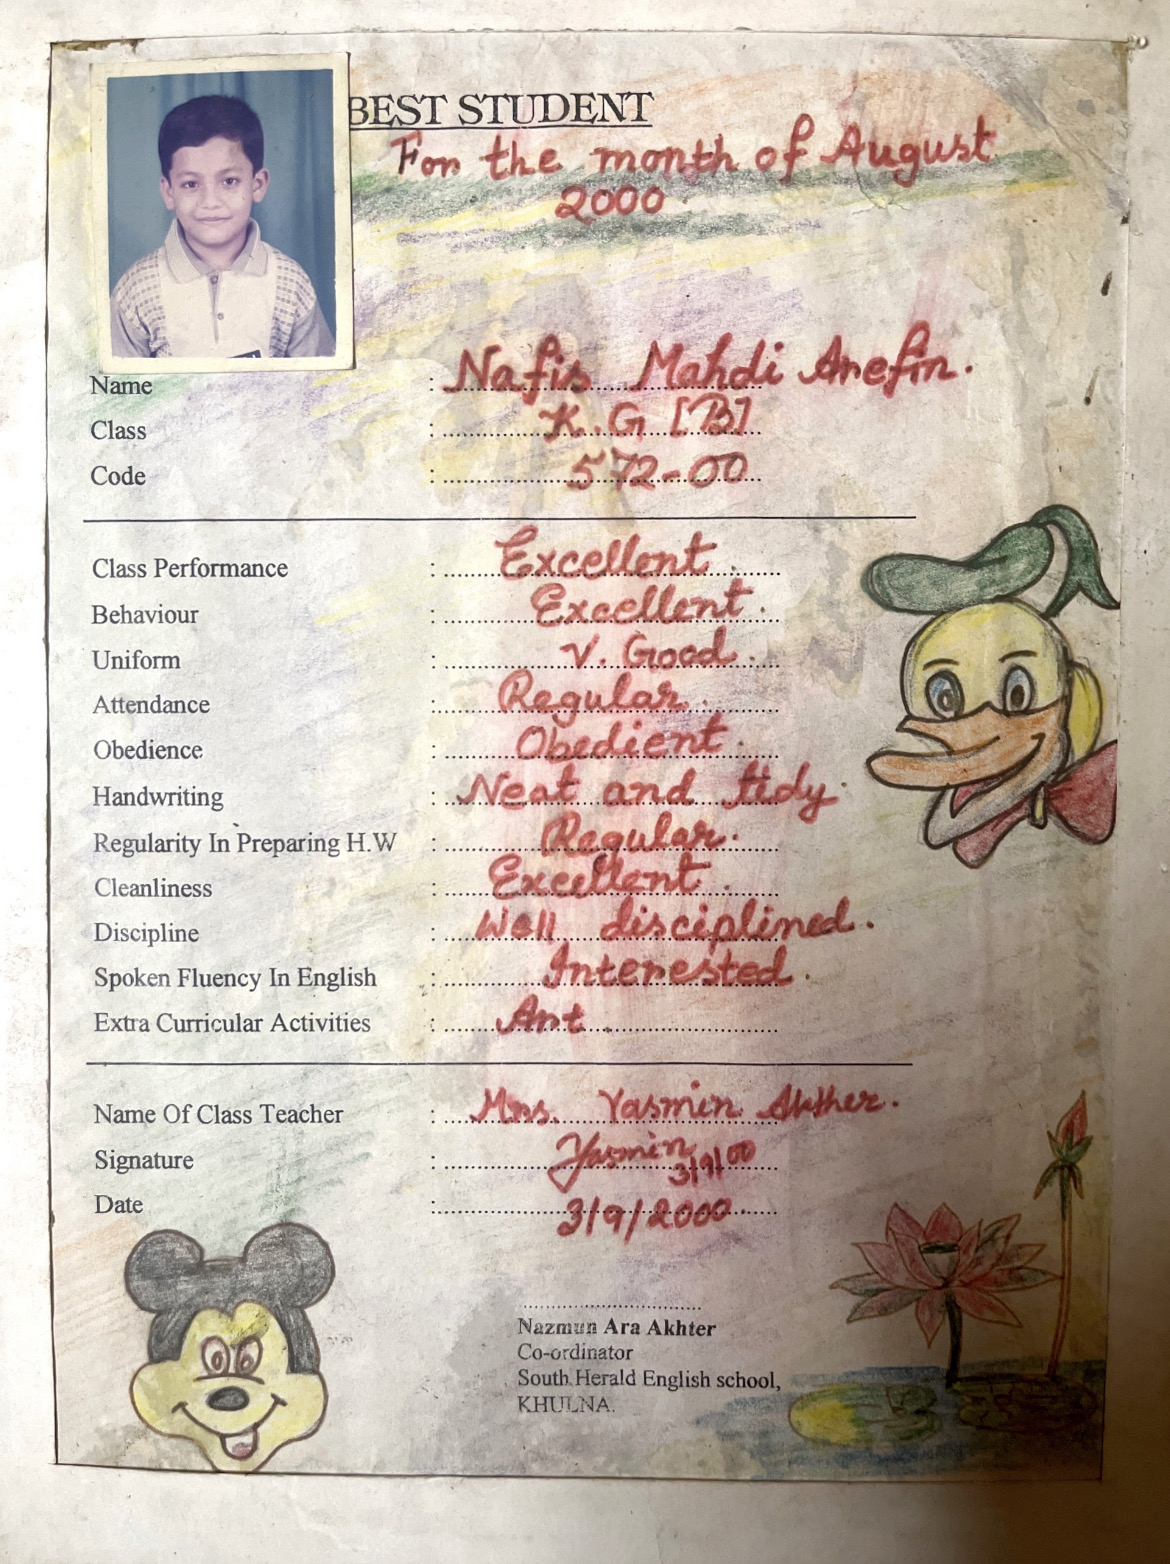 BEST STUDENT
For the month of August
2000
Name : Nafis Mahdi Arefin.
Class : K.G [B]
Code : 572-00
Class Performance : Excellent.
Behaviour : Excellent.
Uniform : V. Good.
Attendance : Regular.
Obedience : Obedient.
Handwriting : Neat and tidy.
Regularity In Preparing H.W : Regular.
Cleanliness : Excellent.
Discipline : Well disciplined.
Spoken Fluency In English : Interested.
Extra Curricular Activities : Art.
Name Of Class Teacher : Mrs. Yasmin Akther.
Signature : Yasmin 3/9/00
Date : 3/9/2000.
Nazmun Ara Akhter
Co-ordinator
South Herald English school,
KHULNA.